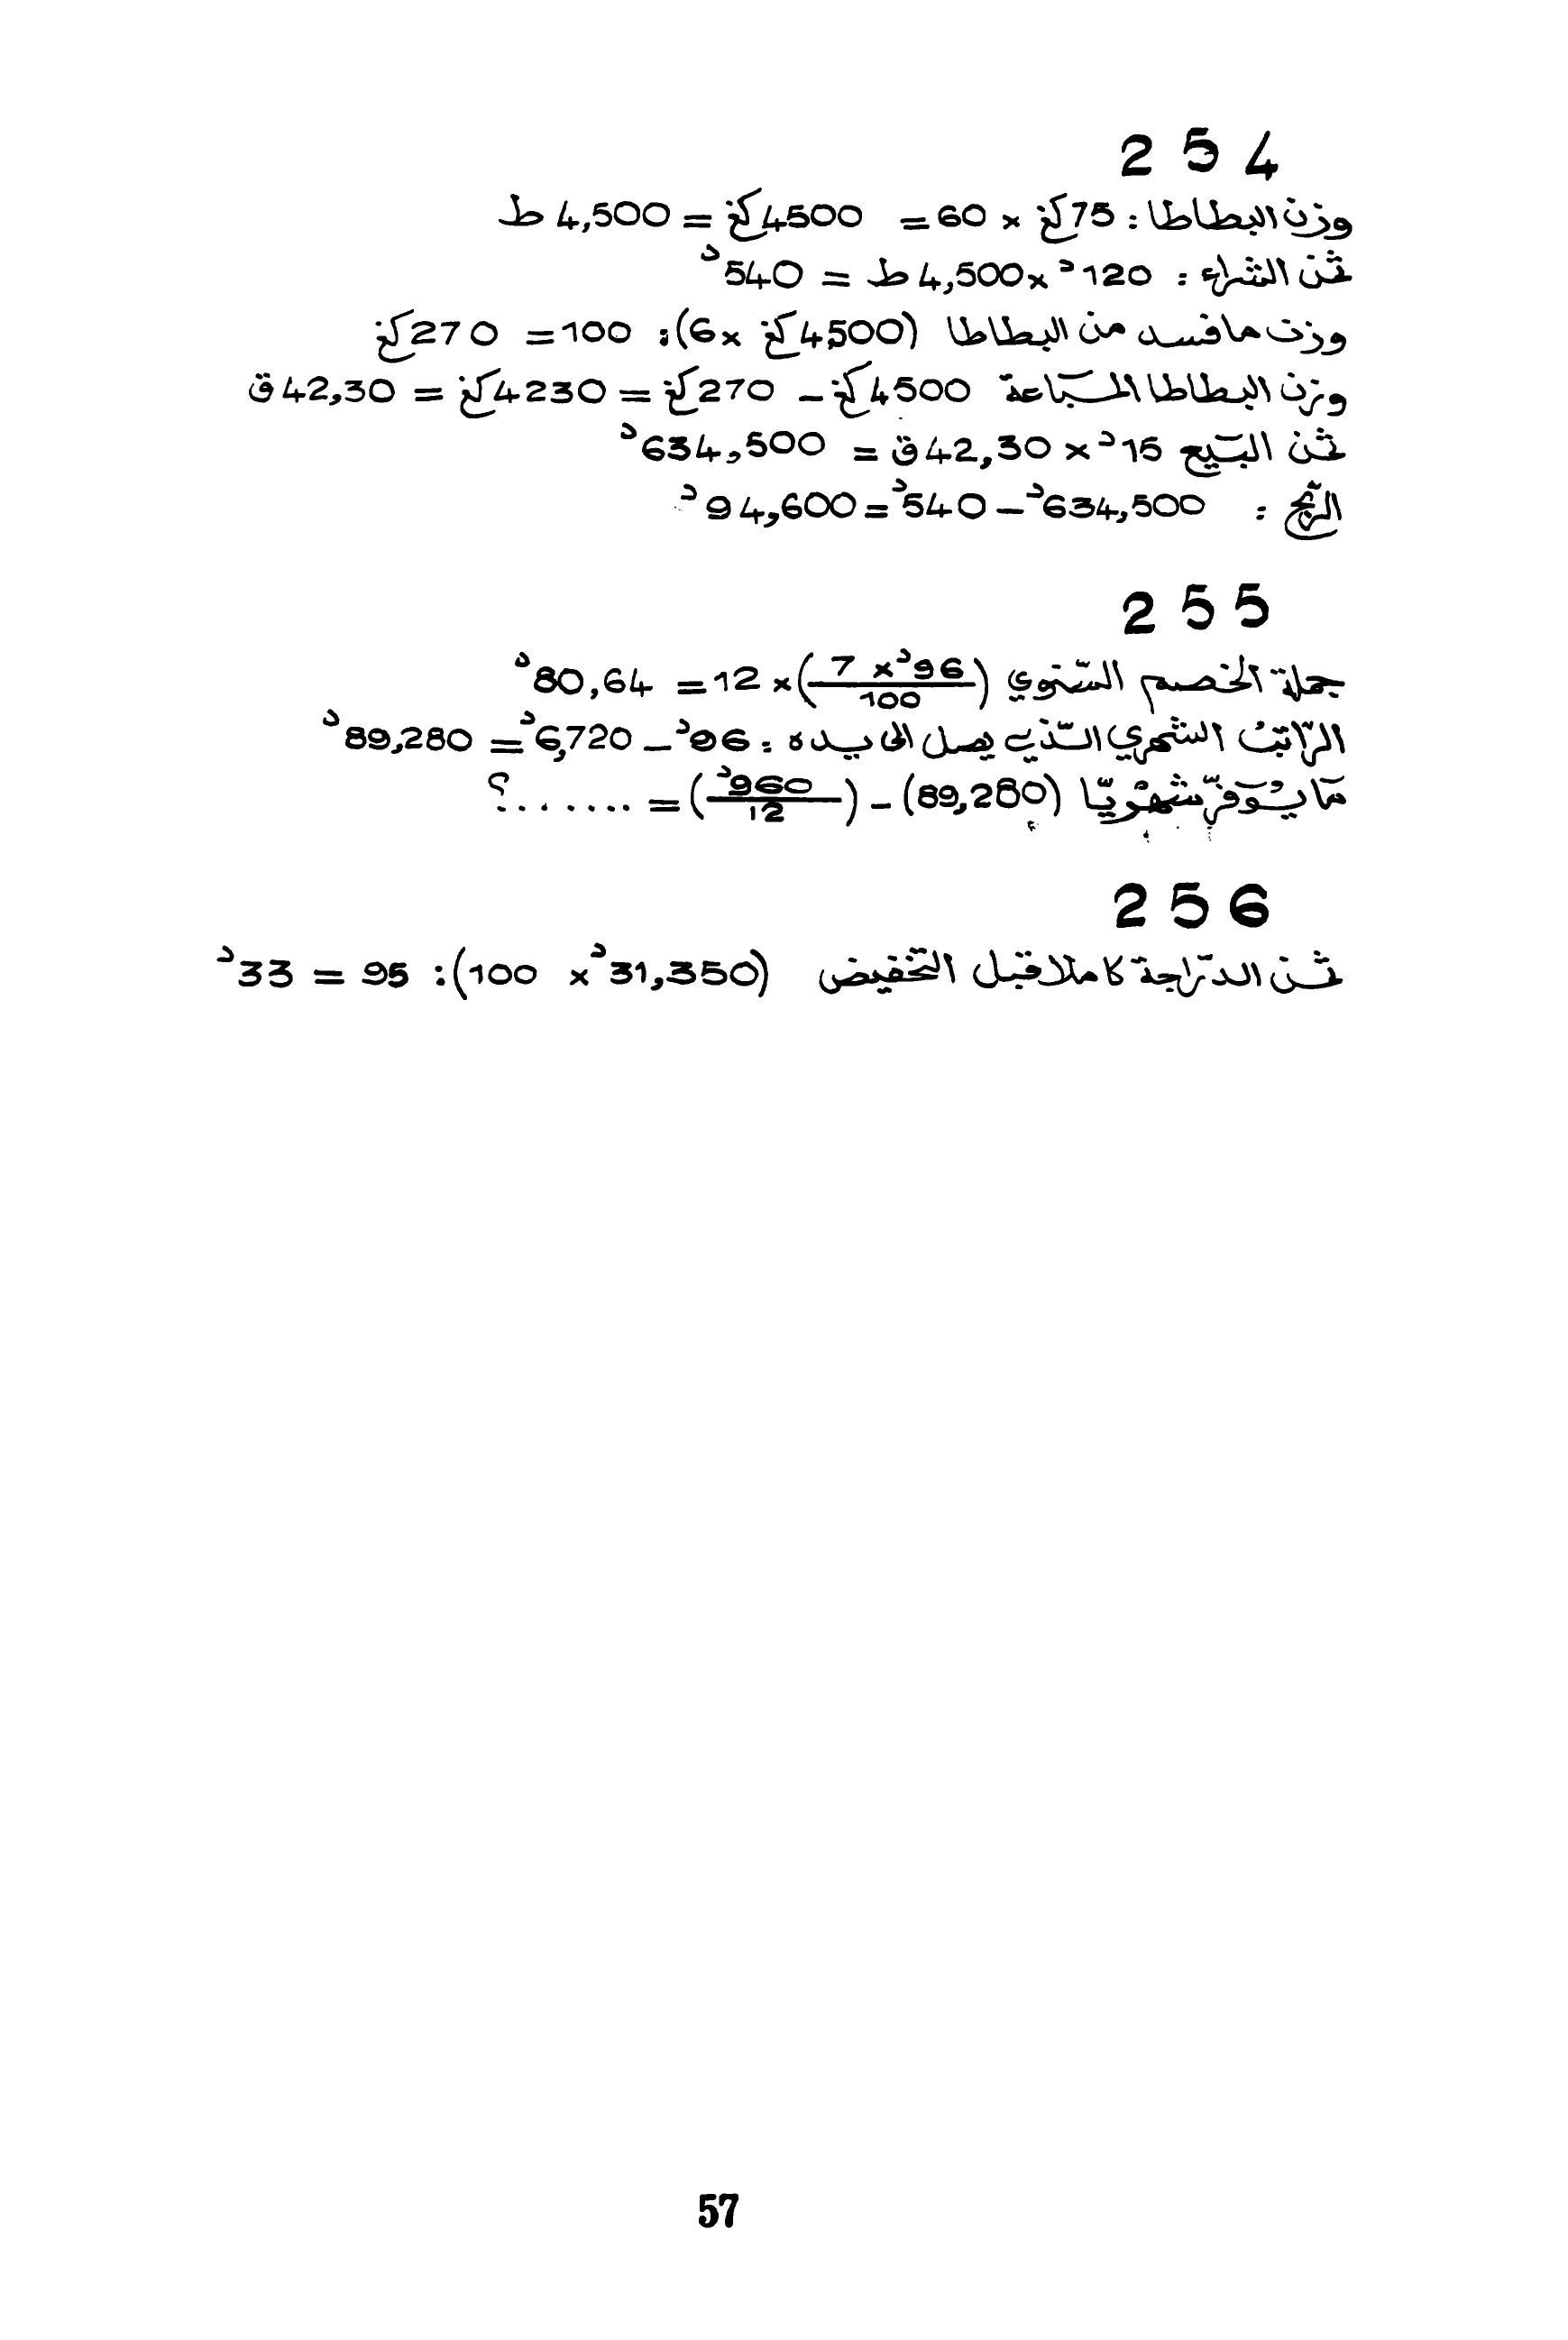 254
وزن البطاطا : 75كغ × 60 = 4500كغ = 4,500 ط
ثمن الشراء : 120د × 4,500 ط = 540د
وزن ما فسد من البطاطا (4,500كغ × 6) : 100 = 270كغ
وزن البطاطا المبَاعة 4500كغ - 270كغ = 4230كغ = 42,30ق
ثمن البَيع 15د × 42,30ق = 634,500د
الرّبح : 634,500د - 540د = 94,600د
255
جملة الخصم السّنوي (96د × 7 / 100) × 12 = 80,64د
الرّاتبُ الشهري الذّي يصل الى يده : 96د - 6,720د = 89,280د
مَا يُوَفّر شهْريّا (89,280) - (960د / 12) = .......؟
256
ثمن الدرّاجة كاملا قبل التخفيض (31,350د × 100) : 95 = 33د
57